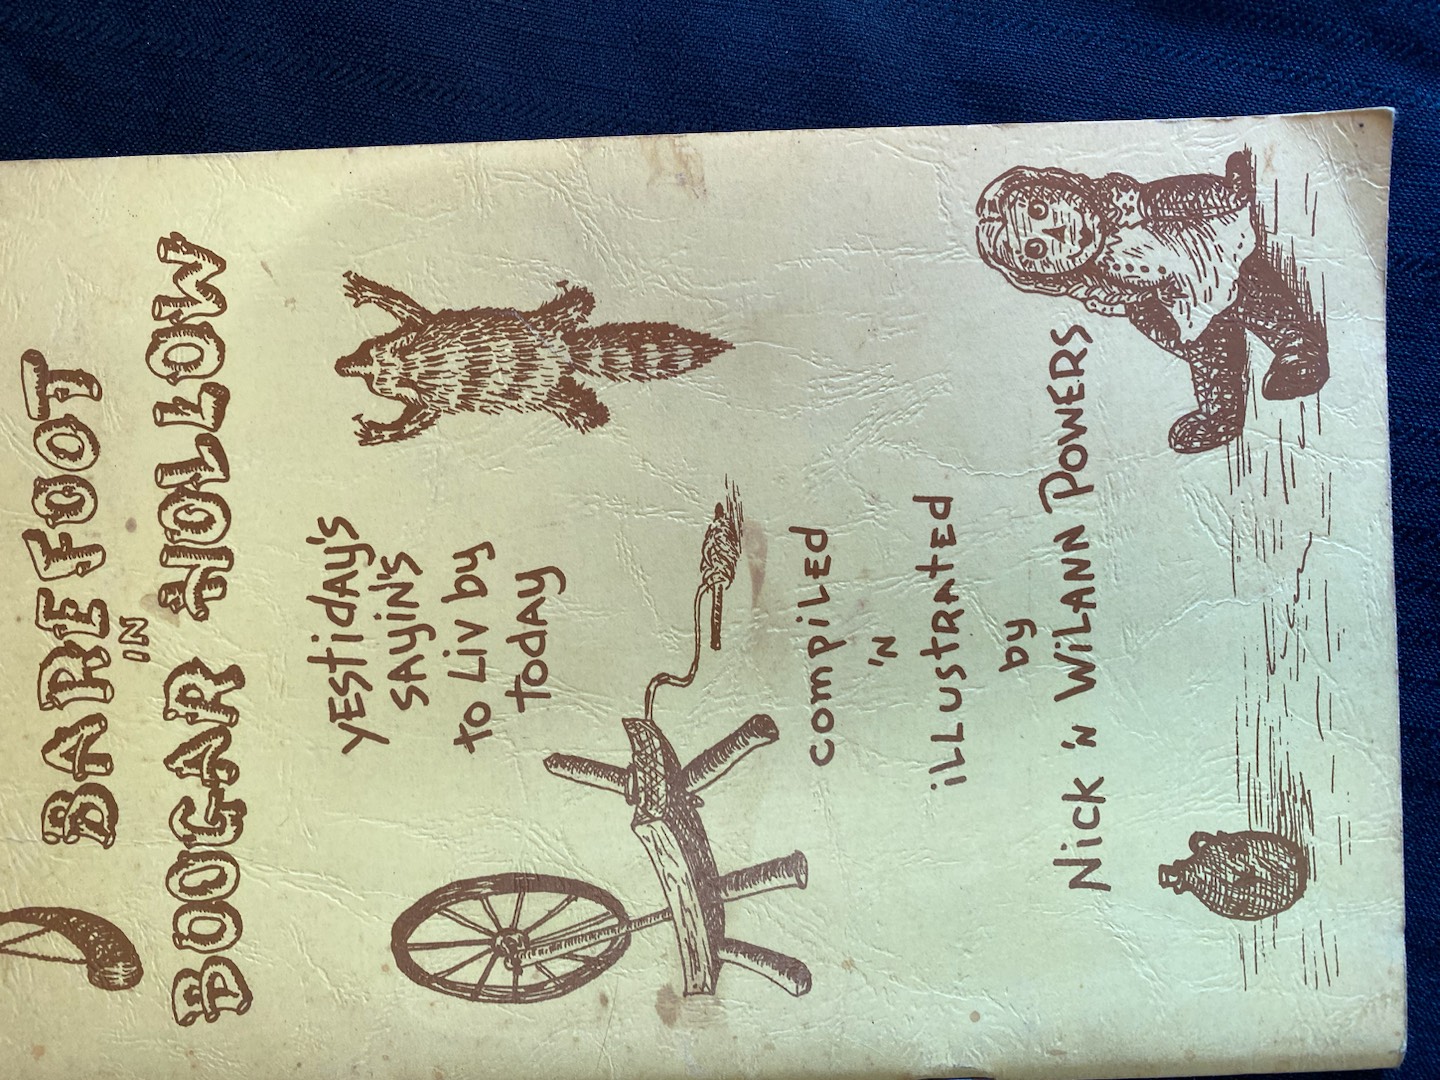 BAREFOOT
IN
BOOGAR HOLLOW
YEStiday's
sayin's
to Liv by
today
compiled
'n
illustrated
by
Nick 'n Wilann Powers